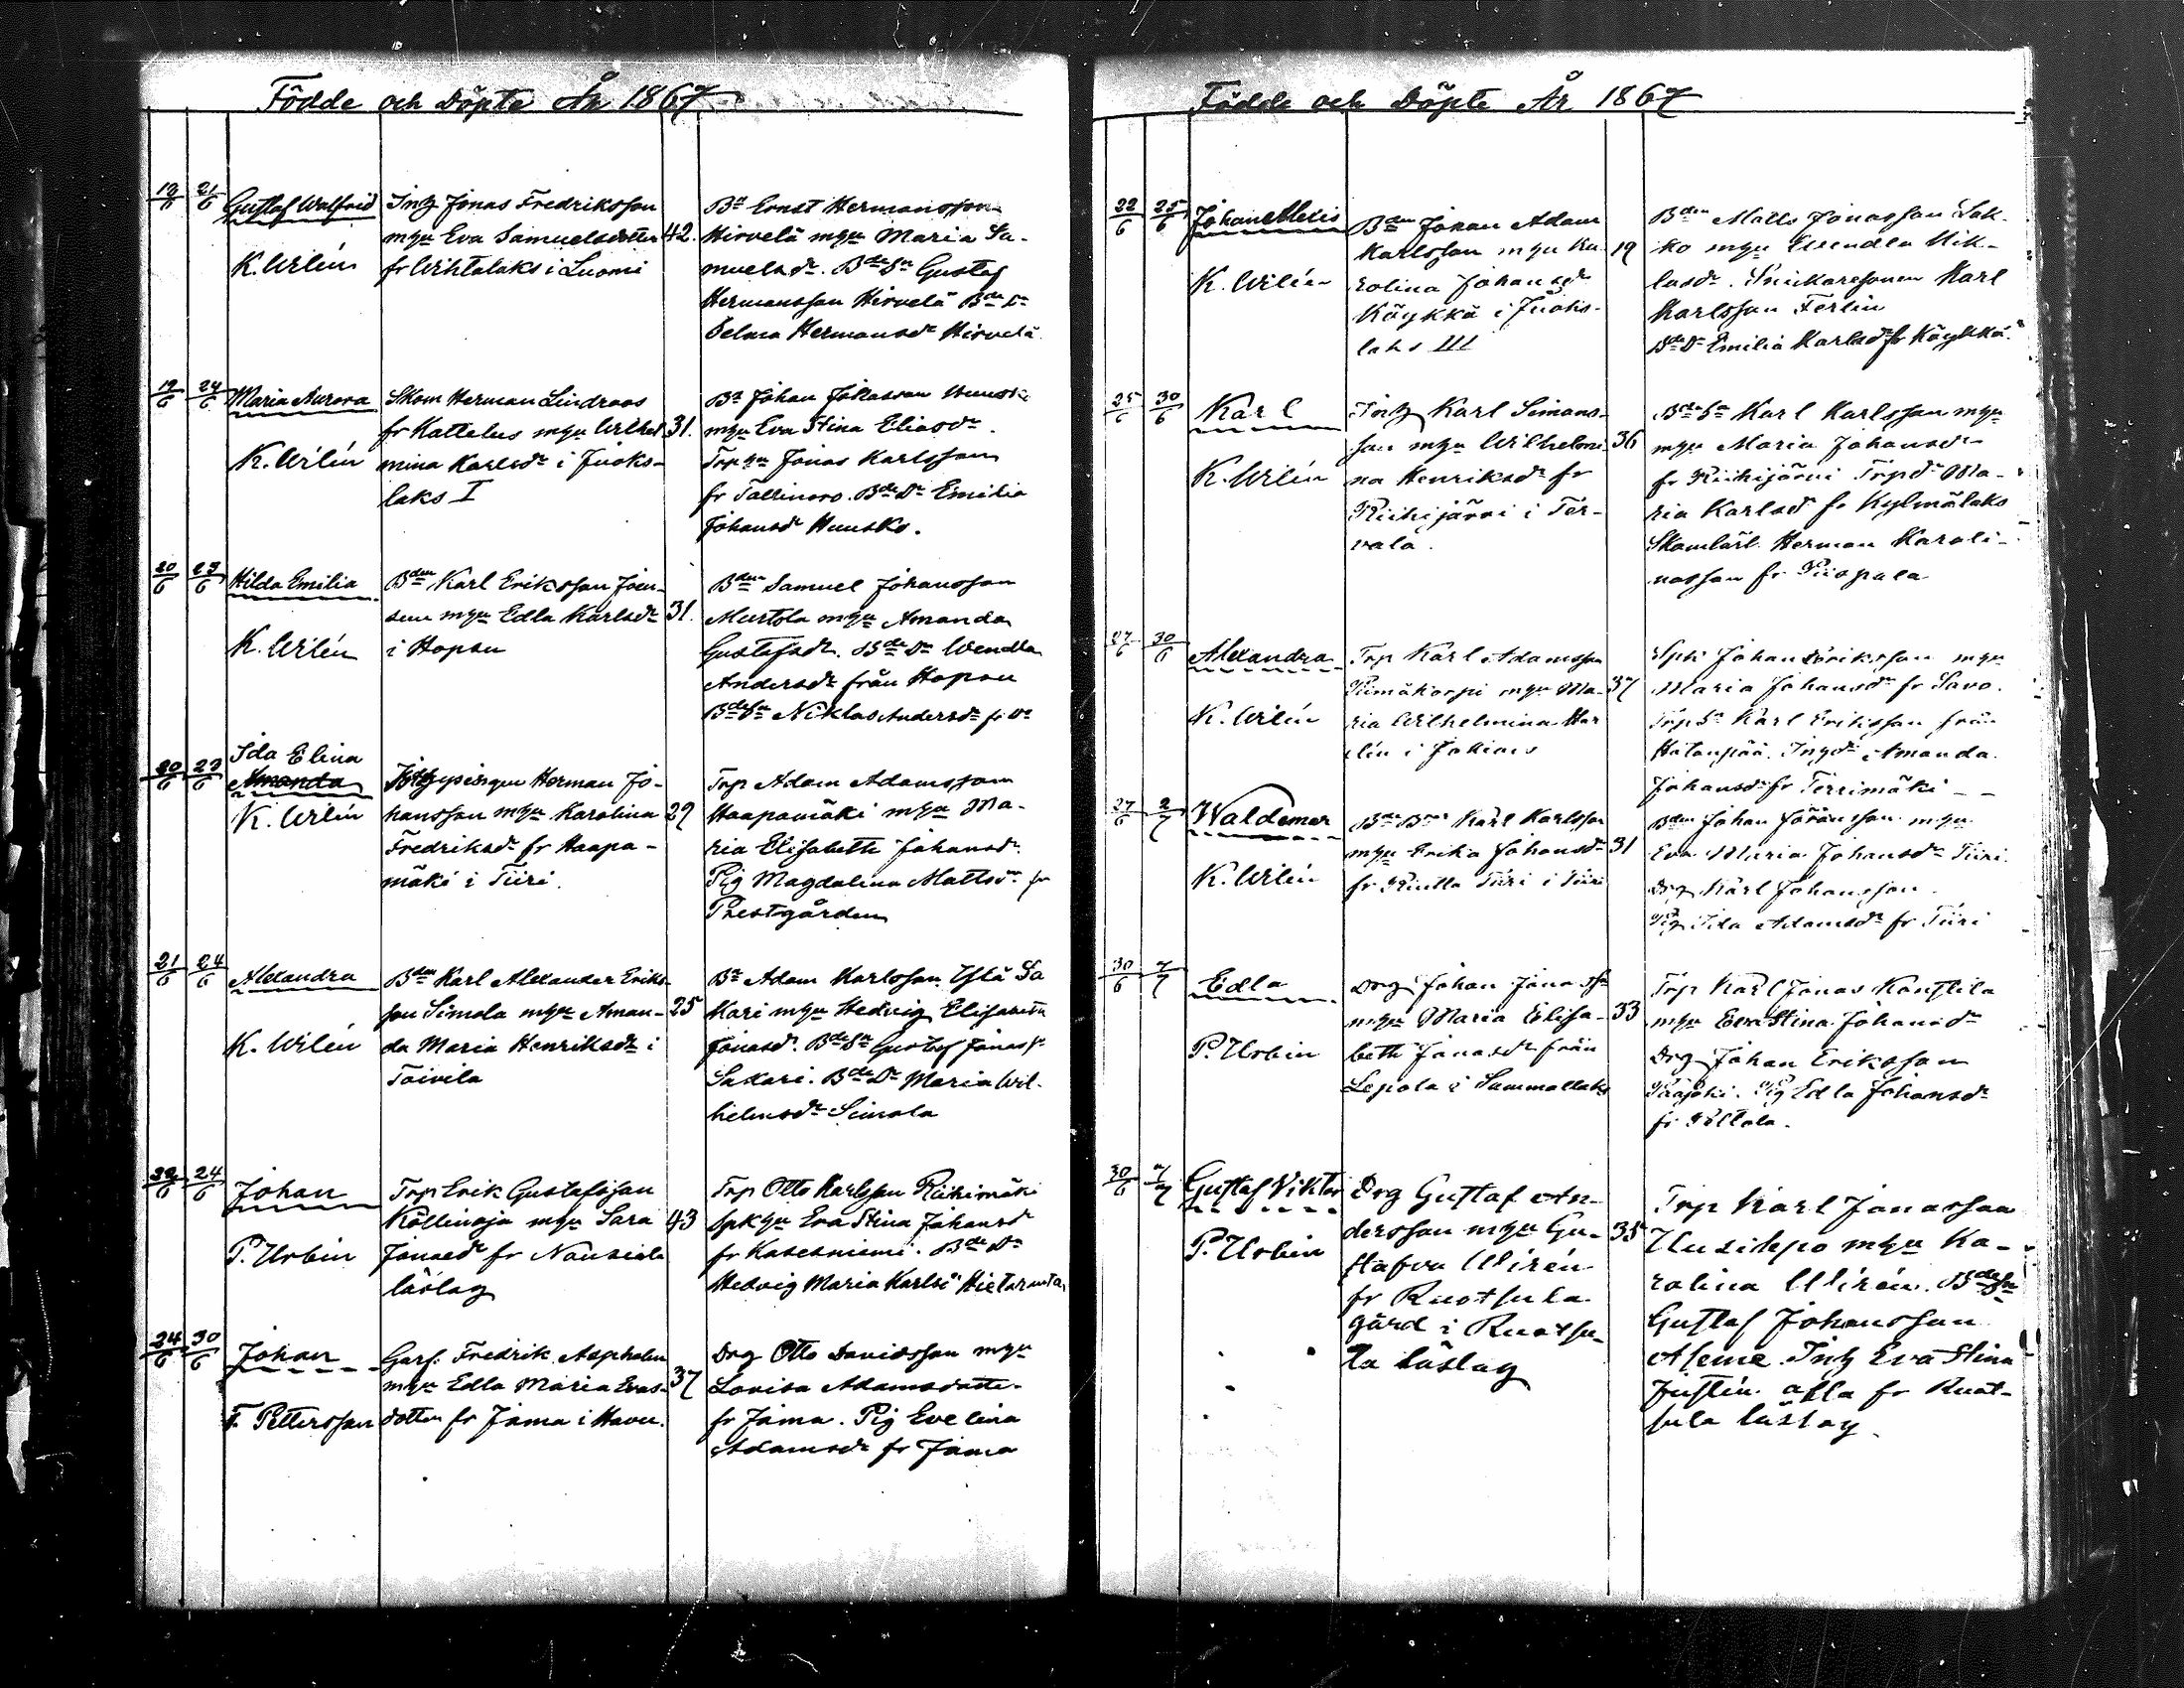 Födde och Döpte År 1867
19/6 21/6 Gustaf Walfrid
K. Wilén
Inh Jonas Fredriksson
mhu Eva Samuelsdotter 42.
fr Wihtalaks i Luomi
Bn Ernst Hermansson
Hirvelä mhu Maria Sa-
muelsdr. Bde Sn Gustaf
Hermansson Hirvelä Bde Dr
Selma Hermansdr Hirvelä
19/6 24/6 Maria Aurora
K. Wilén
Skom Herman Lindroos
fr Kattelus mhu Wilhel 31.
mina Karlsdr i Juoks-
laks I
Bn Johan
mhu Eva Stina Eliasdr.
Jonas Karlsson
fr. Bde Dr Emilia
Johansdr Hunsko.
20/6 23/6 Hilda Emilia
K. Wilén
Bden Karl Eriksson Joen-
suu mhu Edla Karlsdr 31.
i Hopsu
Bden Samuel Johansson
Murtola mhu Amanda
Gustafsdr. Bde Dr Wendla
Andersdr från Hopsu
Bde Sn Niklas Andersd
Ida Elina
20/6 23/6 Amanda
K. Wilén
Herman Jo-
hansson mhu Karolina 29
Fredriksdr fr Haapa-
mäki i Tiiri.
Trp Adam Adamsson
Haapamäki mhu Ma-
ria Elisabeth Johansdr.
Pig Magdalena Mattsdr fr
Prestgården
21/6 24/6 Alexandra
K. Wilén
Bden Karl Alexander Eriks-
son Simola mhu Aman- 25
da Maria Henriksdr i
Toivila
Bn Adam Karlsson Yltä Sa
kari mhu Hedvig Elisabeth
Jonasdr. Bde Sn Gustaf Jonass
Sakari. Bde Dr Maria Wil-
helmsdr Simola
22/6 24/6 Johan
P. Urbin
Trp Erik Gustafsson
Kollinoja mhu Sara 43
Jonasdr fr
läslag
Trp Otto Karlsson Riihimäki
Eva Stina Johansd
fr Kasesniemi. Bde Dr
Hedvig Maria Karlsd Hietaranta
24/6 30/6 Johan
F. Pettersson
Garf. Fredrik Aspholm
mhu Edla Maria Evas- 37
dotter fr Jäma i Havu.
Drg Otto Davidsson mhu
Lovisa Adamsdotter
fr Jäma. Pig Evelina
Adamsdr fr Jäma
Födde och Döpte År 1867
22/6 25/6 Johan Alexis
K. Wilén
Bden Johan Adam
Karlsson mhu Ka- 19
rolina Johansdr
Käykkä i Juoks-
laks III
Bden Matts Jonasson Sak-
ko mhu Wendla Nik-
lasdr. Snickaresonen Karl
Karlsson Ferlin
Bde Dr Emilia Karlsdr fr Käykkä.
25/6 30/6 Karl
K. Wilén
Inh Karl Simons-
son mhu Wilhelmi- 36
na Henriksdr fr
Riihijärvi i Ter-
vala.
Bde Sn Karl Karlsson mhu
mhu Maria Johansdr
fr Riihijärvi Trpdr Ma-
ria Karlsdr fr Kylmälaks
Skomlärl. Herman Karoli-
nasson fr Piispala
27/6 30/6 Alexandra
K. Wilén
Trp Karl Adamsson
mhu Ma- 37
ria Wilhelmina Har
lin i Jokiais
Spk Johan Eriksson mhu
Maria Johansdr fr Savo.
Trp Sn Karl Eriksson från
Hatanpää. Amanda
Johansdr fr Terrimäki
27/6 2/7 Waldemar
K. Wilén
Karl Karlsson
mhu Erika Johansdr 31
fr Tiiri i Tiiri
Bden Johan Göransson mhu
Eva Maria Johansdr Tiiri.
Drg Karl Johansson
Pig Ida Adamsdr fr Tiiri
30/6 7/7 Edla
P. Urbin
Drg Johan Jonasson
mhu Maria Elisa- 33
beth Jonasdr från
Lepola i Sammallaks
Trp Karl Jonas
mhu Eva Stina Johansdr
Drg Johan Eriksson
Pääjoki. Pig Edla Johansdr
fr Peltola.
30/6 7/7 Gustaf Viktor
P. Urbin
Drg Gustaf An-
dersson mhu Gu- 35
stafva Wirén
fr Ruotsula
gård i Ruotsu-
la läslag
Trp Karl Jonasson
Uusilepo mhu Ka-
rolina Wirén. Bde Sn
Gustaf Johansson
Aseme. Inh Eva Stina
Justén alla fr Ruot-
sula läslag.